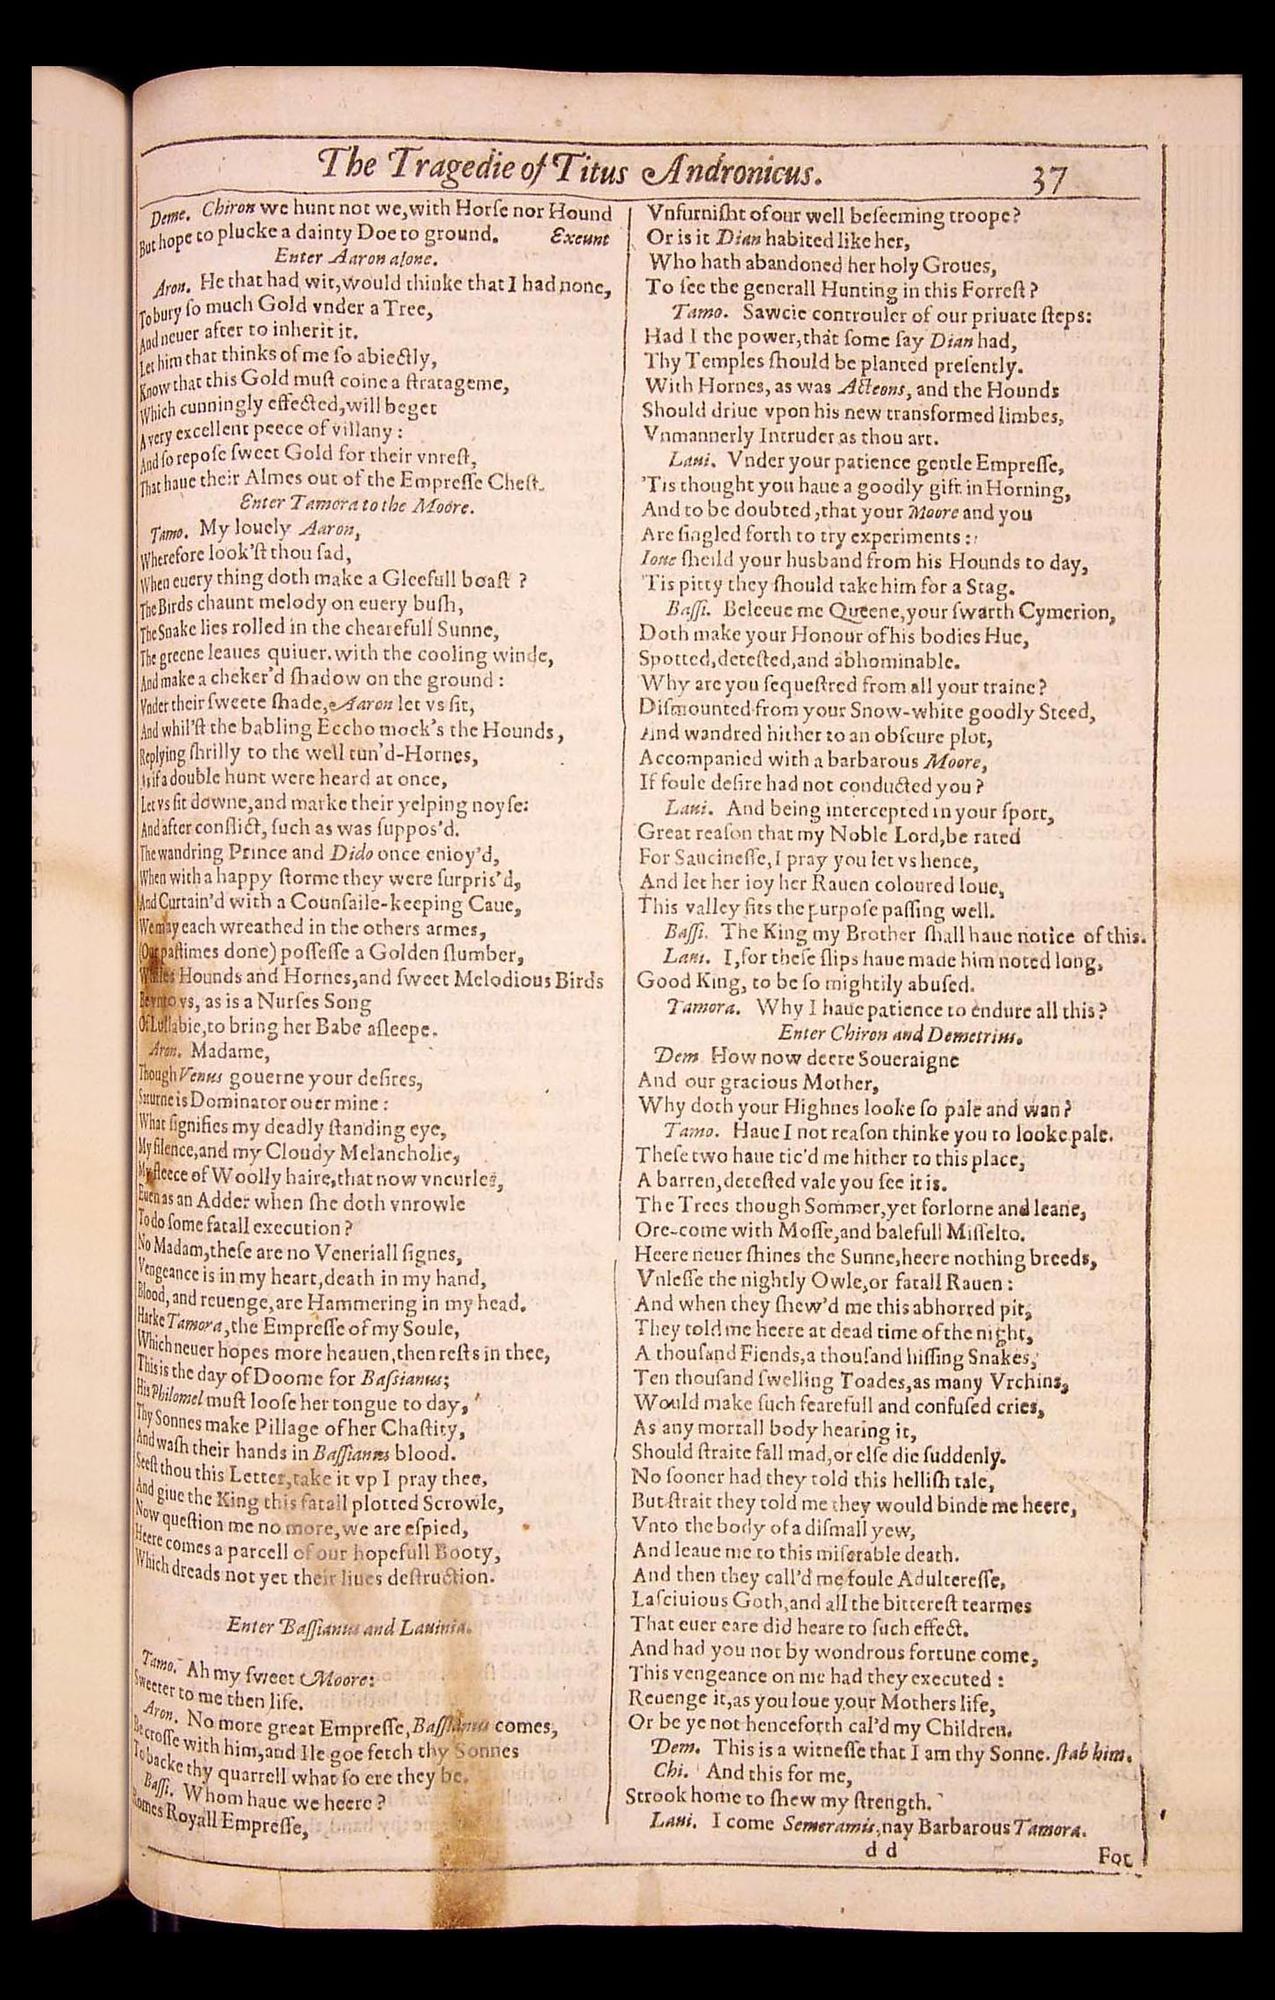 The Tragedie of Titus Andronicus. 37
Deme. Chiron we hunt not we, with Horſe nor Hound
But hope to plucke a dainty Doe to ground. Exeunt
Enter Aaron alone.
Aron. He that had wit, would thinke that I had none,
To bury ſo much Gold vnder a Tree,
And neuer after to inherit it.
Let him that thinks of me ſo abiectly,
Know that this Gold muſt coine a ſtratageme,
Which cunningly effected, will beget
A very excellent peece of villany:
And ſo repoſe ſweet Gold for their vnreſt,
That haue their Almes out of the Empreſſe Cheſt.
Enter Tamora to the Moore.
Tamo. My louely Aaron,
Wherefore look'ſt thou ſad,
When euery thing doth make a Gleefull boaſt?
The Birds chaunt melody on euery buſh,
The Snake lies rolled in the chearefull Sunne,
The greene leaues quiuer. with the cooling winde,
And make a cheker'd ſhadow on the ground:
Vnder their ſweete ſhade, Aaron let vs ſit,
And whil'ſt the babling Eccho mock's the Hounds,
Replying ſhrilly to the well tun'd-Hornes,
As if a double hunt were heard at once,
Let vs ſit downe, and marke their yelping noyſe:
And after conflict, ſuch as was ſuppos'd.
The wandring Prince and Dido once enioy'd,
When with a happy ſtorme they were ſurpris'd,
And Curtain'd with a Counſaile-keeping Caue,
We may each wreathed in the others armes,
(Our paſtimes done) poſſeſſe a Golden ſlumber,
Whiles Hounds and Hornes, and ſweet Melodious Birds
Be vnto vs, as is a Nurſes Song
Of Lullabie, to bring her Babe aſleepe.
Aron. Madame,
Though Venus gouerne your deſires,
Saturne is Dominator ouer mine:
What ſignifies my deadly ſtanding eye,
My ſilence, and my Cloudy Melancholie,
My fleece of Woolly haire, that now vncurles,
Euen as an Adder when ſhe doth vnrowle
To do ſome fatall execution?
No Madam, theſe are no Veneriall ſignes,
Vengeance is in my heart, death in my hand,
Blood, and reuenge, are Hammering in my head.
Harke Tamora, the Empreſſe of my Soule,
Which neuer hopes more heauen, then reſts in thee,
This is the day of Doome for Baſsianus;
His Philomel muſt looſe her tongue to day,
Thy Sonnes make Pillage of her Chaſtity,
And waſh their hands in Baſſianus blood.
Seeſt thou this Letter, take it vp I pray thee,
And giue the King this fatall plotted Scrowle,
Now queſtion me no more, we are eſpied,
Heere comes a parcell of our hopefull Booty,
Which dreads not yet their liues deſtruction.
Enter Baſſianus and Lauinia.
Tamo. Ah my ſweet Moore:
Sweeter to me then life.
Aron. No more great Empreſſe, Baſſianus comes,
Be croſſe with him, and Ile goe fetch thy Sonnes
To backe thy quarrell what ſo ere they be.
Baſſi. Whom haue we heere?
Romes Royall Empreſſe,
Vnfurniſht of our well beſeeming troope?
Or is it Dian habited like her,
Who hath abandoned her holy Groues,
To ſee the generall Hunting in this Forreſt?
Tamo. Sawcie controuler of our priuate ſteps:
Had I the power, that ſome ſay Dian had,
Thy Temples ſhould be planted preſently.
With Hornes, as was Acteons, and the Hounds
Should driue vpon his new transformed limbes,
Vnmannerly Intruder as thou art.
Laui. Vnder your patience gentle Empreſſe,
'Tis thought you haue a goodly gift in Horning,
And to be doubted, that your Moore and you
Are ſingled forth to try experiments:
Ioue ſheild your husband from his Hounds to day,
'Tis pitty they ſhould take him for a Stag.
Baſſi. Beleeue me Queene, your ſwarth Cymerion,
Doth make your Honour of his bodies Hue,
Spotted, deteſted, and abhominable.
Why are you ſequeſtred from all your traine?
Diſmounted from your Snow-white goodly Steed,
And wandred hither to an obſcure plot,
Accompanied with a barbarous Moore,
If foule deſire had not conducted you?
Laui. And being intercepted in your ſport,
Great reaſon that my Noble Lord, be rated
For Saucineſſe, I pray you let vs hence,
And let her ioy her Rauen coloured loue,
This valley fits the purpoſe paſſing well.
Baſſi. The King my Brother ſhall haue notice of this.
Laui. I, for theſe ſlips haue made him noted long,
Good King, to be ſo mightily abuſed.
Tamora. Why I haue patience to endure all this?
Enter Chiron and Demetrius.
Dem. How now deere Soueraigne
And our gracious Mother,
Why doth your Highnes looke ſo pale and wan?
Tamo. Haue I not reaſon thinke you to looke pale.
Theſe two haue tic'd me hither to this place,
A barren, deteſted vale you ſee it is.
The Trees though Sommer, yet forlorne and leane,
Ore-come with Moſſe, and balefull Miſſelto.
Heere neuer ſhines the Sunne, heere nothing breeds,
Vnleſſe the nightly Owle, or fatall Rauen:
And when they ſhew'd me this abhorred pit,
They told me heere at dead time of the night,
A thouſand Fiends, a thouſand hiſſing Snakes,
Ten thouſand ſwelling Toades, as many Vrchins,
Would make ſuch fearefull and confuſed cries,
As any mortall body hearing it,
Should ſtraite fall mad, or elſe die ſuddenly.
No ſooner had they told this helliſh tale,
But ſtrait they told me they would binde me heere,
Vnto the body of a diſmall yew,
And leaue me to this miſerable death.
And then they call'd me foule Adultereſſe,
Laſciuious Goth, and all the bittereſt tearmes
That euer eare did heare to ſuch effect.
And had you not by wondrous fortune come,
This vengeance on me had they executed:
Reuenge it, as you loue your Mothers life,
Or be ye not henceforth cal'd my Children.
Dem. This is a witneſſe that I am thy Sonne. ſtab him.
Chi. And this for me,
Strook home to ſhew my ſtrength.
Laui. I come Semeramis, nay Barbarous Tamora.
d d For